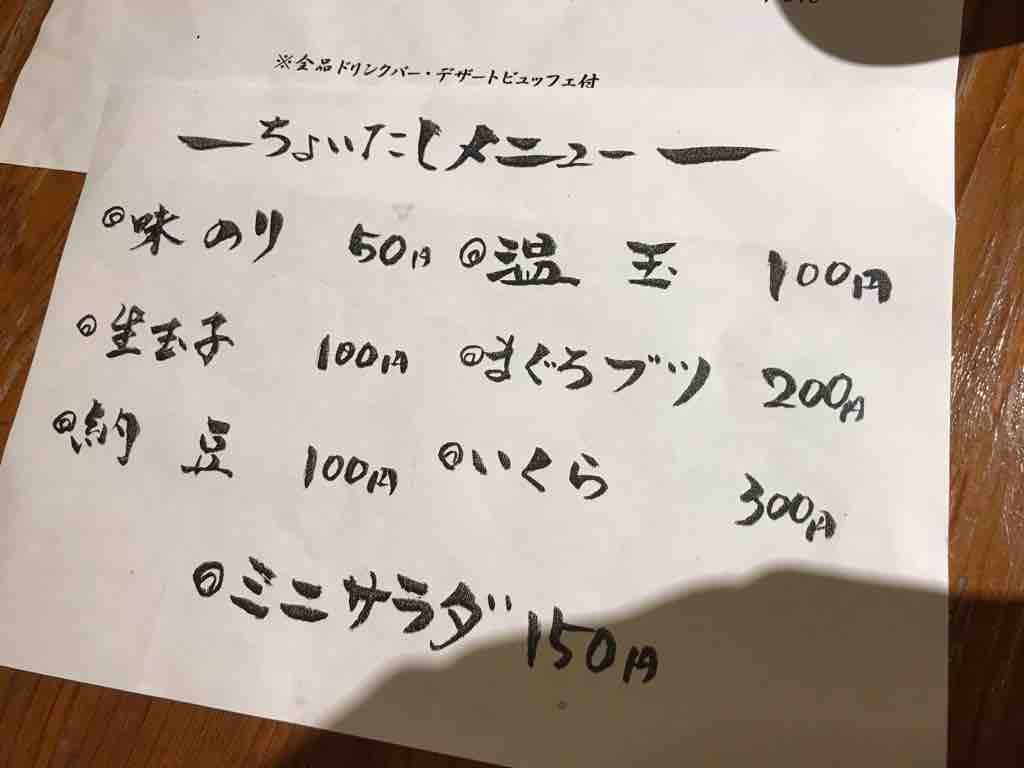 ※全品ドリンクバー・デザートビュッフェ付
ーちょいたしメニューー
◎味のり 50円 ◎温玉 100円
◎生玉子 100円 ◎まぐろブツ 200円
◎納豆 100円 ◎いくら 300円
◎ミニサラダ 150円